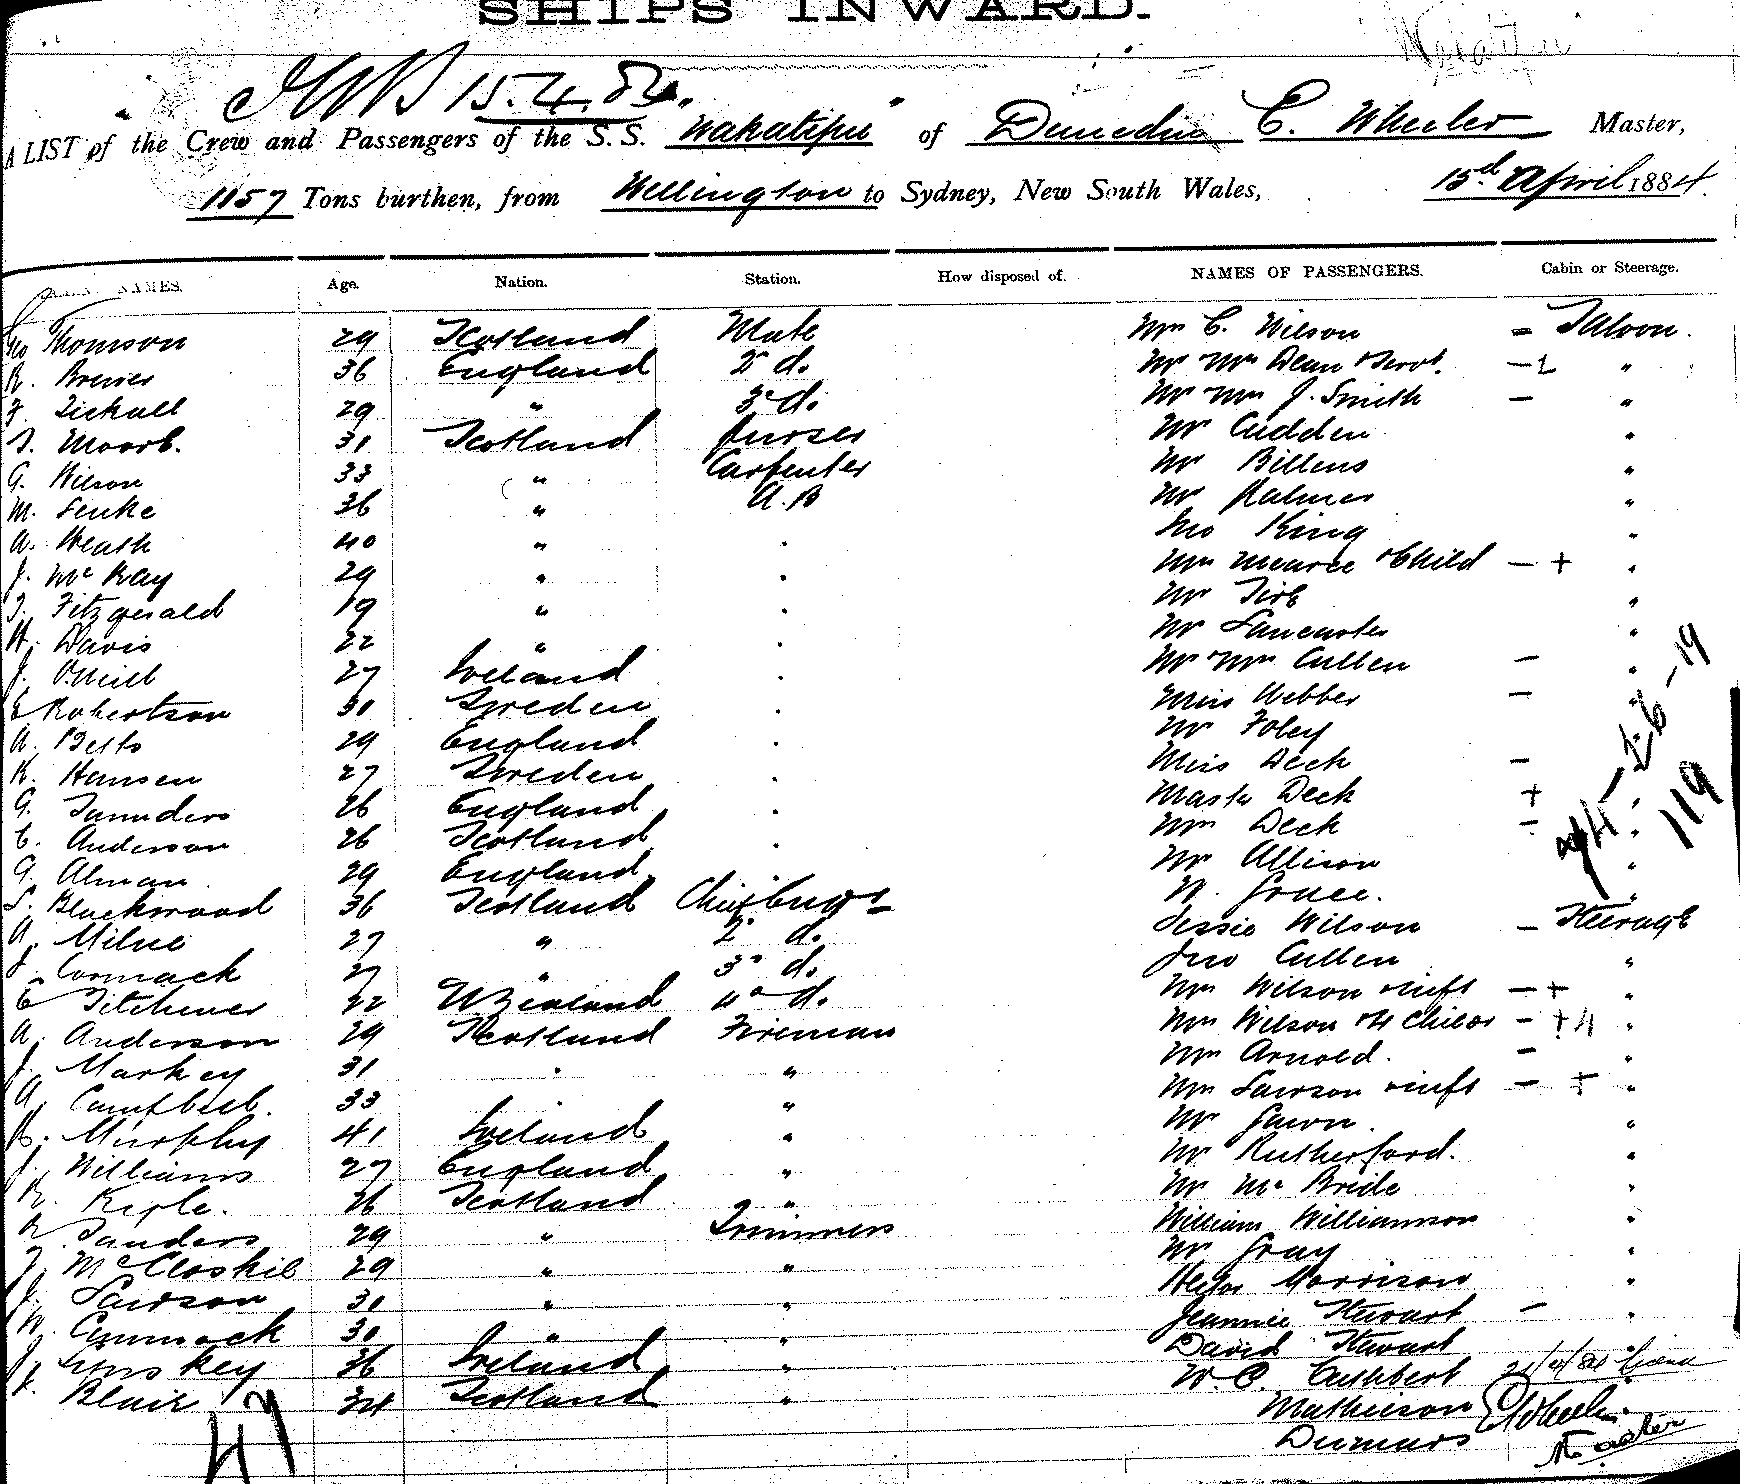 SHIPS INWARD.
15.4.84.
A LIST of the Crew and Passengers of the S.S. "Wakatipu" of Dunedin C. Wheeler Master,
1157 Tons burthen, from Wellington to Sydney, New South Wales, 15d April 1884.
NAMES. Age. Nation. Station. How disposed of. NAMES OF PASSENGERS. Cabin or Steerage.
Thomson 29 Scotland Mate Mrs C. Wilson - Saloon.
R. Brewer 36 England 2d do. Mr Mrs Dean & Servt. - 2 "
29 " 3d do. Mr Mrs J. Smith - "
31 Scotland Purser Mr Cudden "
G. Wilson 33 " Carpenter Mr Billens "
M. 36 " A.B Mr Palmer "
A. Heath 40 " . Jno King "
J. McKay 29 " . Mrs Child - + "
T. Fitzgerald 19 " . Mr "
H. Davis 22 " . Mr Lancaster "
J. ONeil 27 Ireland . Mr & Mrs Cullen - "
E Robertson 30 Sweden . Miss Webber - "
A. Betts 29 England . Mr Foley
K. Hansen 27 Sweden . Miss Deck -
G. Saunders 26 England . Mastr Deck + "
C. Anderson 26 Scotland . Mrs Deck - "
G. Alman 29 England Mr Allison "
S. Blackwood 36 Scotland Chief Engr W. Grace. "
A. Milne 27 " 2d do. Jessie Wilson - Steerage
J. Cormack 27 " 3d do. Jno Cullen "
E Titchener 22 N Zealand 4th do. Mrs Wilson & inft - + "
A. Anderson 29 Scotland Fireman Mrs Wilson & 4 Childr - + 4 "
J. Markey 31 " " Mrs Arnold. - "
A. Campbell. 33 " Mrs Lawson & inft - + "
R. Murphy 41 Ireland " Mr Gawn. "
J. Williams 27 England " Mr Rutherford. "
R. 26 Scotland " Mr McBride "
R. Sanders 29 " Trimmers William Williamson "
J. McCloskie 29 " " Mr Gray "
J. Lawson 31 " " Hector Morrison "
W. Cammack 30 " " Jeannie Stewart - "
J. 36 Ireland " David Stewart "
J. Blair 34 Scotland " W. C. Cuthbert
47
Matheson
CWheeler
Master
119